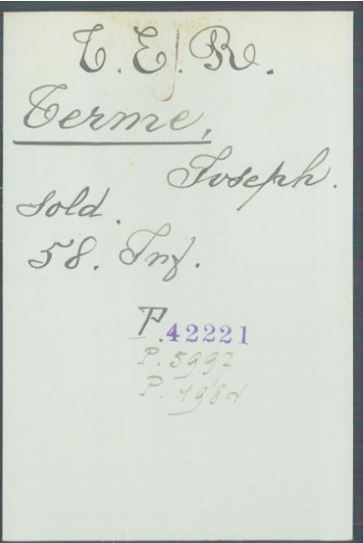 T. E. R.
Terme,
Joseph.
Sold.
58. Inf.
P. 42221
P. 5992
P. 4984